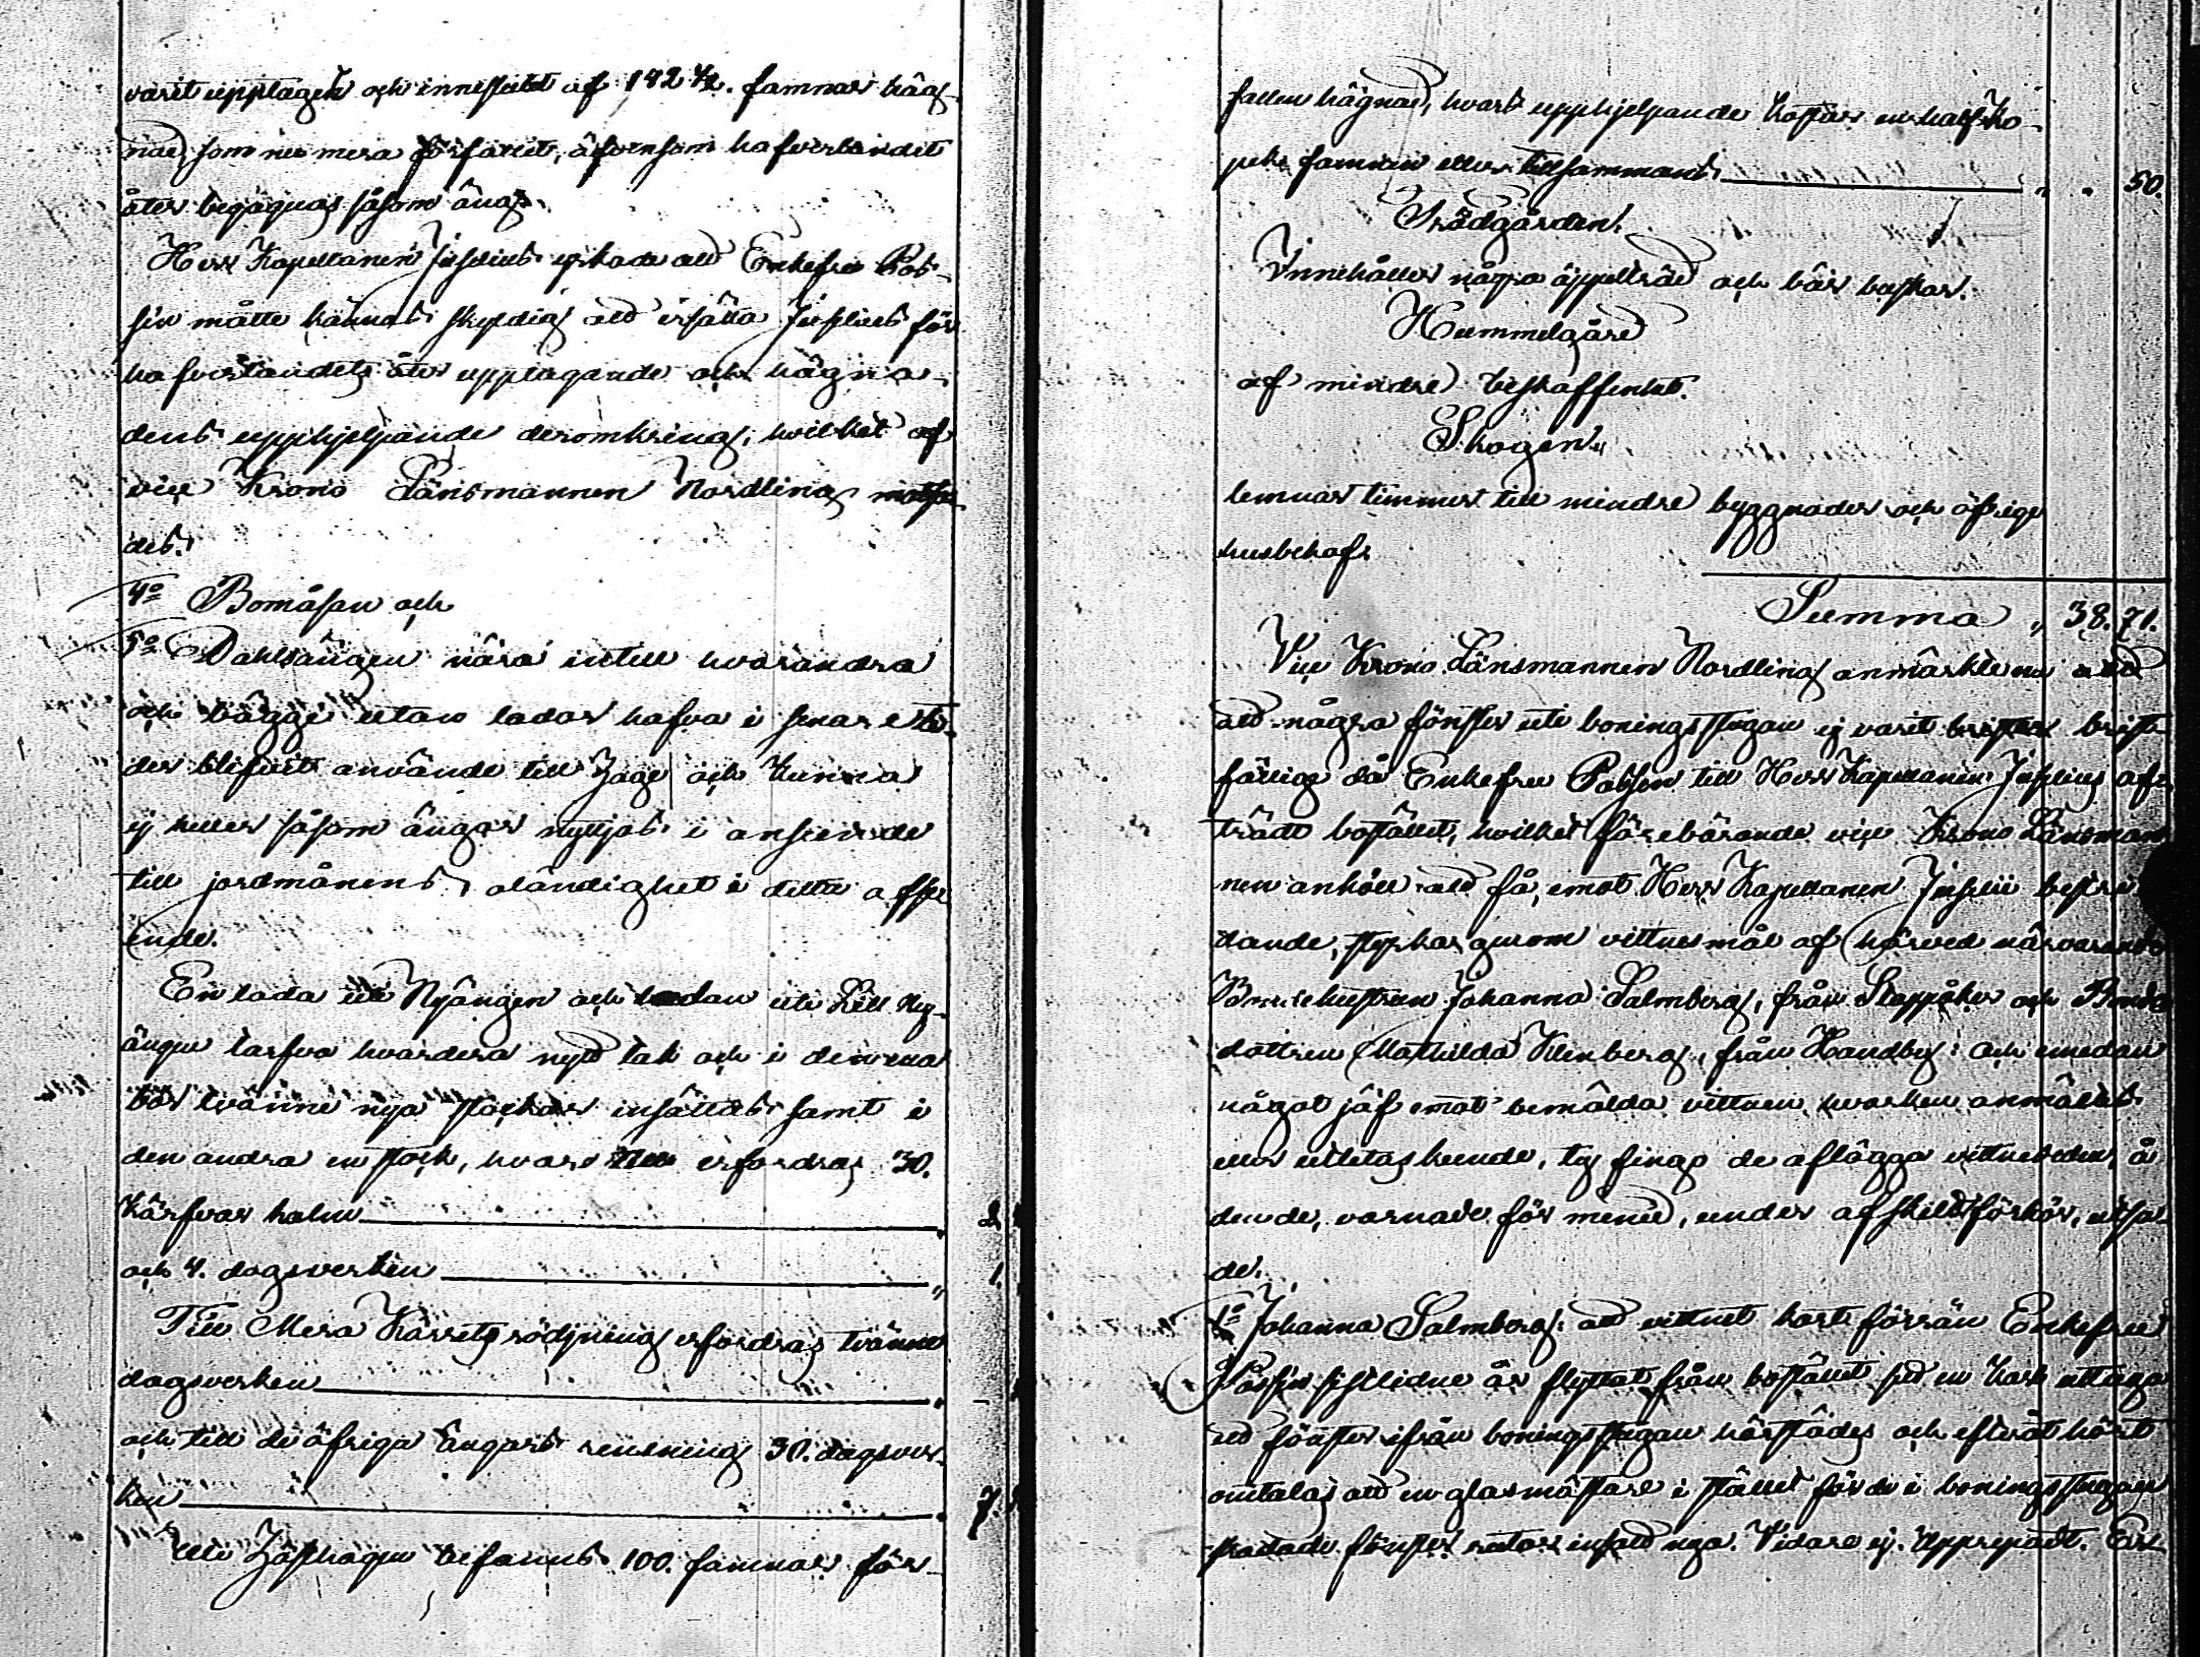 varit upptaget och inneslutet af 142 1/2. famnar häg-
nad, som nu mera förfallit, äfvensom hafverlandet
åter begagnas såsom äng.
Herr Kapellanen Juselius yrkade att Enkefru Pols-
sin måtte kännas skyldig att ersätta Juselius för
hafverlandets åter upptagande och hägna-
dens upphjelpande deromkring, hvilket af
vice Krono Länsmannen Nordling motsa-
des.
4o Bomåsan och
5o Dahlsängen nära intill hvarandra
och bägge utan lador hafva i senare ti-
der blifvit använde till Hage och kunna
ej heller såsom ängar nyttjas i anseende
till jordmånens oländighet i detta afse-
ende.
En lada uti Nyängen och ladan uti Lill Ny-
ängen tarfva hvardera nytt tak och i den ena
bör tvänne nya stockar insättas samt i
den andra en stock, hvartill erfordras 30.
kärfvar halm " 2
och 4. dagsverken " 1.
Till Mera Kärrets rödjning erfordras tvänne
dagsverken " -
och till de öfriga ängars rensning 30. dagsver-
ken " 7.
Uti Hästhagen befanns 100. famnar för-
fallen hägnad, hvars upphjelpande kostar en half ko-
pek famnen eller tillsammans " " 50.
Trädgården.
Innehåller några äppelträd och bär buskar.
Hummelgård
af mindre beskaffenhet.
Skogen.
lemnar timmer till mindre byggnader och öfrige
husbehof.
Summa " 38. 71.
Vice Krono Länsmannen Nordling anmärkte nu att
att några fönster uti boningsstugan ej varit brist-
fällige då Enkefru Polssin till Herr Kapellanen Juselius af-
trädt bostället, hvilket förebärande vice Krono Länsman-
nen anhöll att få, emot Herr Kapellanen Juselii bestri-
dande, styrka genom vittnesmål af härved närvarande
Bondehustrun Johanna Salmberg, från Stappåker och Bonde
dottren Mathilda Klenberg, från Handby; och emedan
något jäf emot bemälda vittnen hvarken anmäldes
eller utletas kunde, ty fingo de aflägga vittneseden, å
dende, varnade för mened, under afskildt förhör, utsa-
de.
1o Johanna Salmberg: att vittnet kort förrän Enkefru
Polssin sistlidne år flyttat från bostället sett en karl uttaga
ett fönster ifrån boningsstugan härstädes och efteråt hört
omtalas att en glasmästare i stället för de i boningsstugan
skadade fönster rutor insatt nya. Vidare ej. Upprepadt. Er-